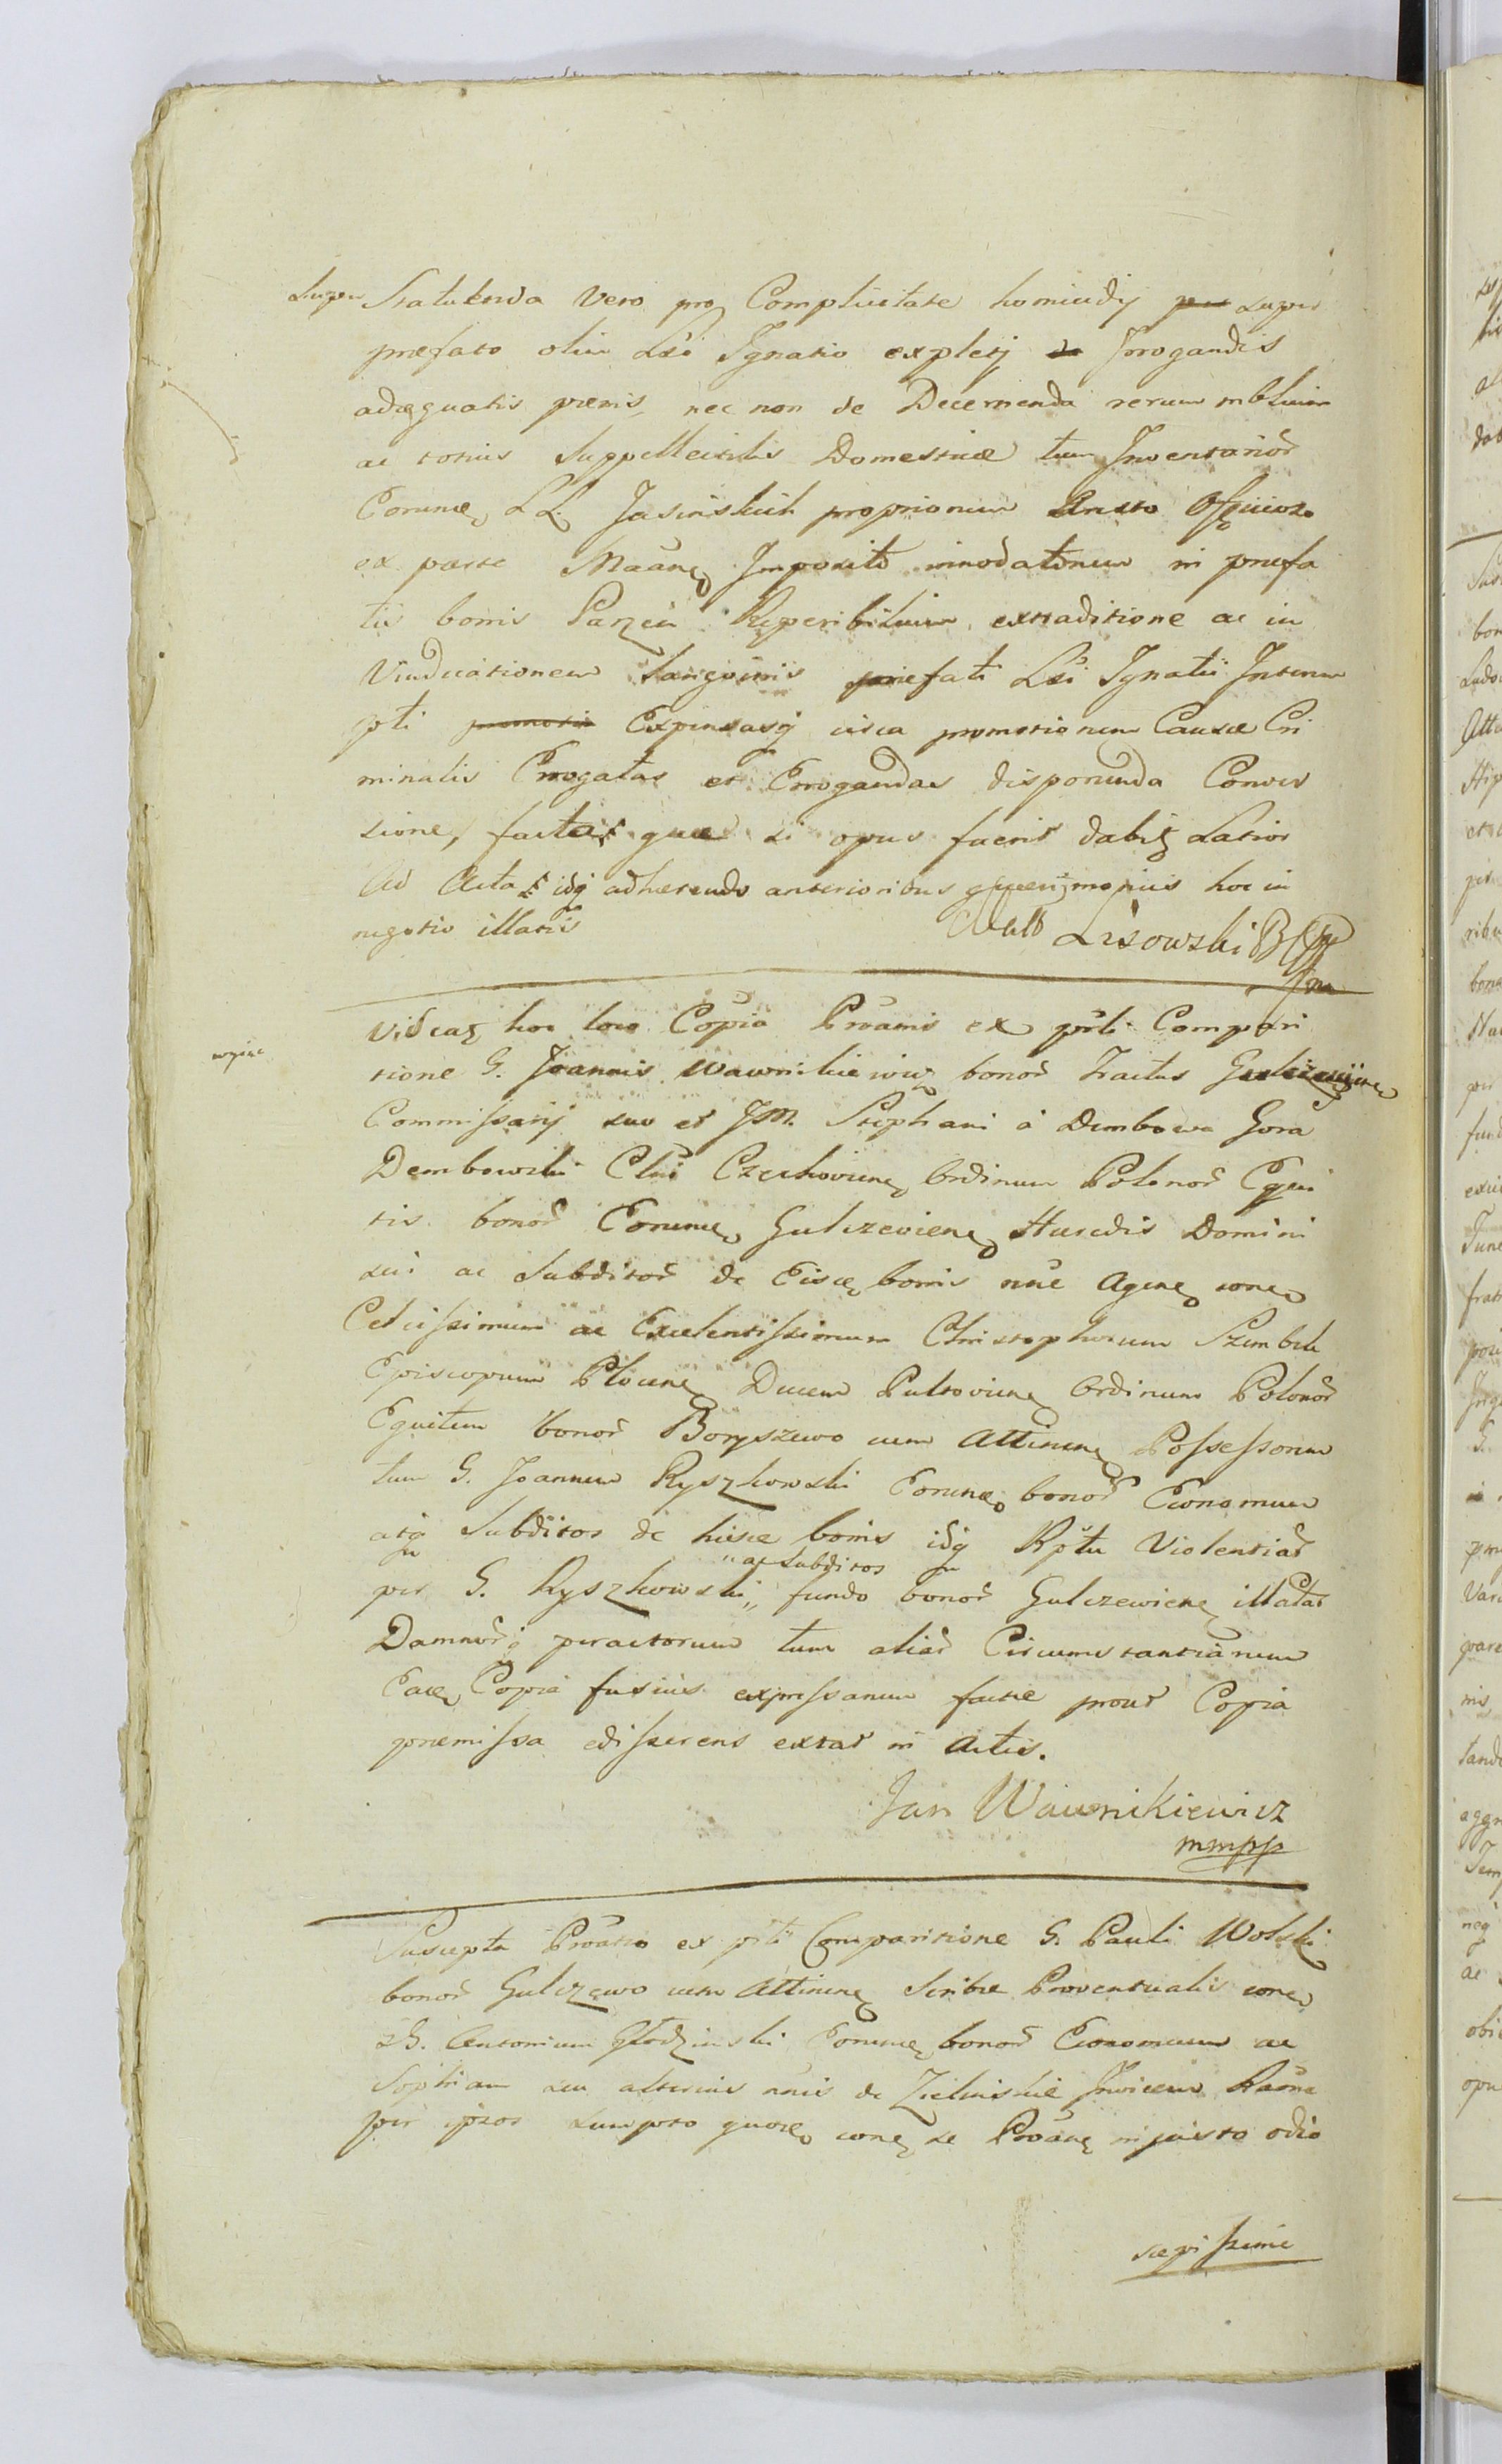 Super Statuenda Vero pro Complicitate homicidij per super
præfato olim Lxi Ignatio expletj de Irrogandis
adæquatis pœnis, nec non de Decernenda rerum mblium
ac totius Suppellectilis Domesticæ tum Inventarior
Eorunde LL. Jasinskich propriorum Aresto Officioso
ex parte Imposito innodatorum in præfa
tis bonis Parzeń Reperibilium extraditione ac in
Vindicationem Sanguinis præfati Lxi Ignatii Interem
pti promotis Expensasq circa promotionem Causæ Cri
minalis Erogatas et Erogandas disponenda Convic
tione, factas quæ si opus fuerit dabit Latior
Ad Acta idq adhærendo anterioribus querimoniis hoc in
negotio illatis
Lisowski
Videat hoc loco Copia Proanis ex prti Compari
tione G. Joannis Wawrnikiewicz bonor Tractus
Commissarij suo et JM. Stephani à Dembowa Gora
Dembowski Clni Czechoviene Ordinum Polonor Equi
tis bonor Eorunde Gulczeviene Hæredis Domini
sui ac Subditor de Eisce bonis nue Agene cone
Celsissimum ac Excelentissimum Christophorum Szembek
Episcopum Plocene Ducem Pultoviene Ordinum Polonor
Equitem bonor Boryszewo cum Attinene Possessorem
tum G. Joannem Ryszkowski Eorunde bonor Economum
atq Subditos de hisce bonis idq Rptu Violentiar
"ac Subditos
per G. Ryszkowski,, fundo bonor Gulczewiene illatar
Damnorq peractorum tum aliar Circumstantiarum
Eade Copia fusius expressarum factæ prout Copia
præmissa edisserens extat in Actis.
copiæ
Jan Wawrnikiewicz
mmpp
Suscepta Proatio ex prti Comparitione G. Pauli Wolski
bonor Gulczewo cum Attinene Scribæ Proventualis cone
G. Antonium Eorunde bonor Economum ac
Sophiam seu alterius nnis de Zielinskie Invicem Raone
per ipsos sumpto quore cone se Proane injusto odio
sæpissime